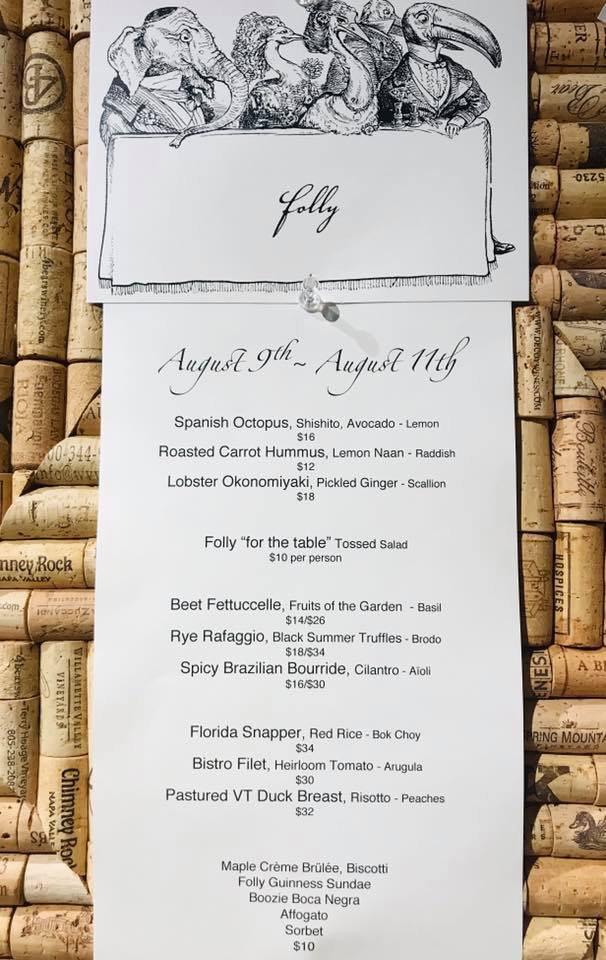 folly
August 9th ~ August 11th
Spanish Octopus, Shishito, Avocado - Lemon
$16
Roasted Carrot Hummus, Lemon Naan - Raddish
$12
Lobster Okonomiyaki, Pickled Ginger - Scallion
$18
Folly "for the table" Tossed Salad
$10 per person
Beet Fettuccelle, Fruits of the Garden - Basil
$14/$26
Rye Rafaggio, Black Summer Truffles - Brodo
$18/$34
Spicy Brazilian Bourride, Cilantro - Aïoli
$16/$30
Florida Snapper, Red Rice - Bok Choy
$34
Bistro Filet, Heirloom Tomato - Arugula
$30
Pastured VT Duck Breast, Risotto - Peaches
$32
Maple Crème Brûlée, Biscotti
Folly Guinness Sundae
Boozie Boca Negra
Affogato
Sorbet
$10
RIOJA
NAPA VALLEY
WILLAMETTE VALLEY
VINEYARDS
Chimney Rock
HOSPICES
5230-